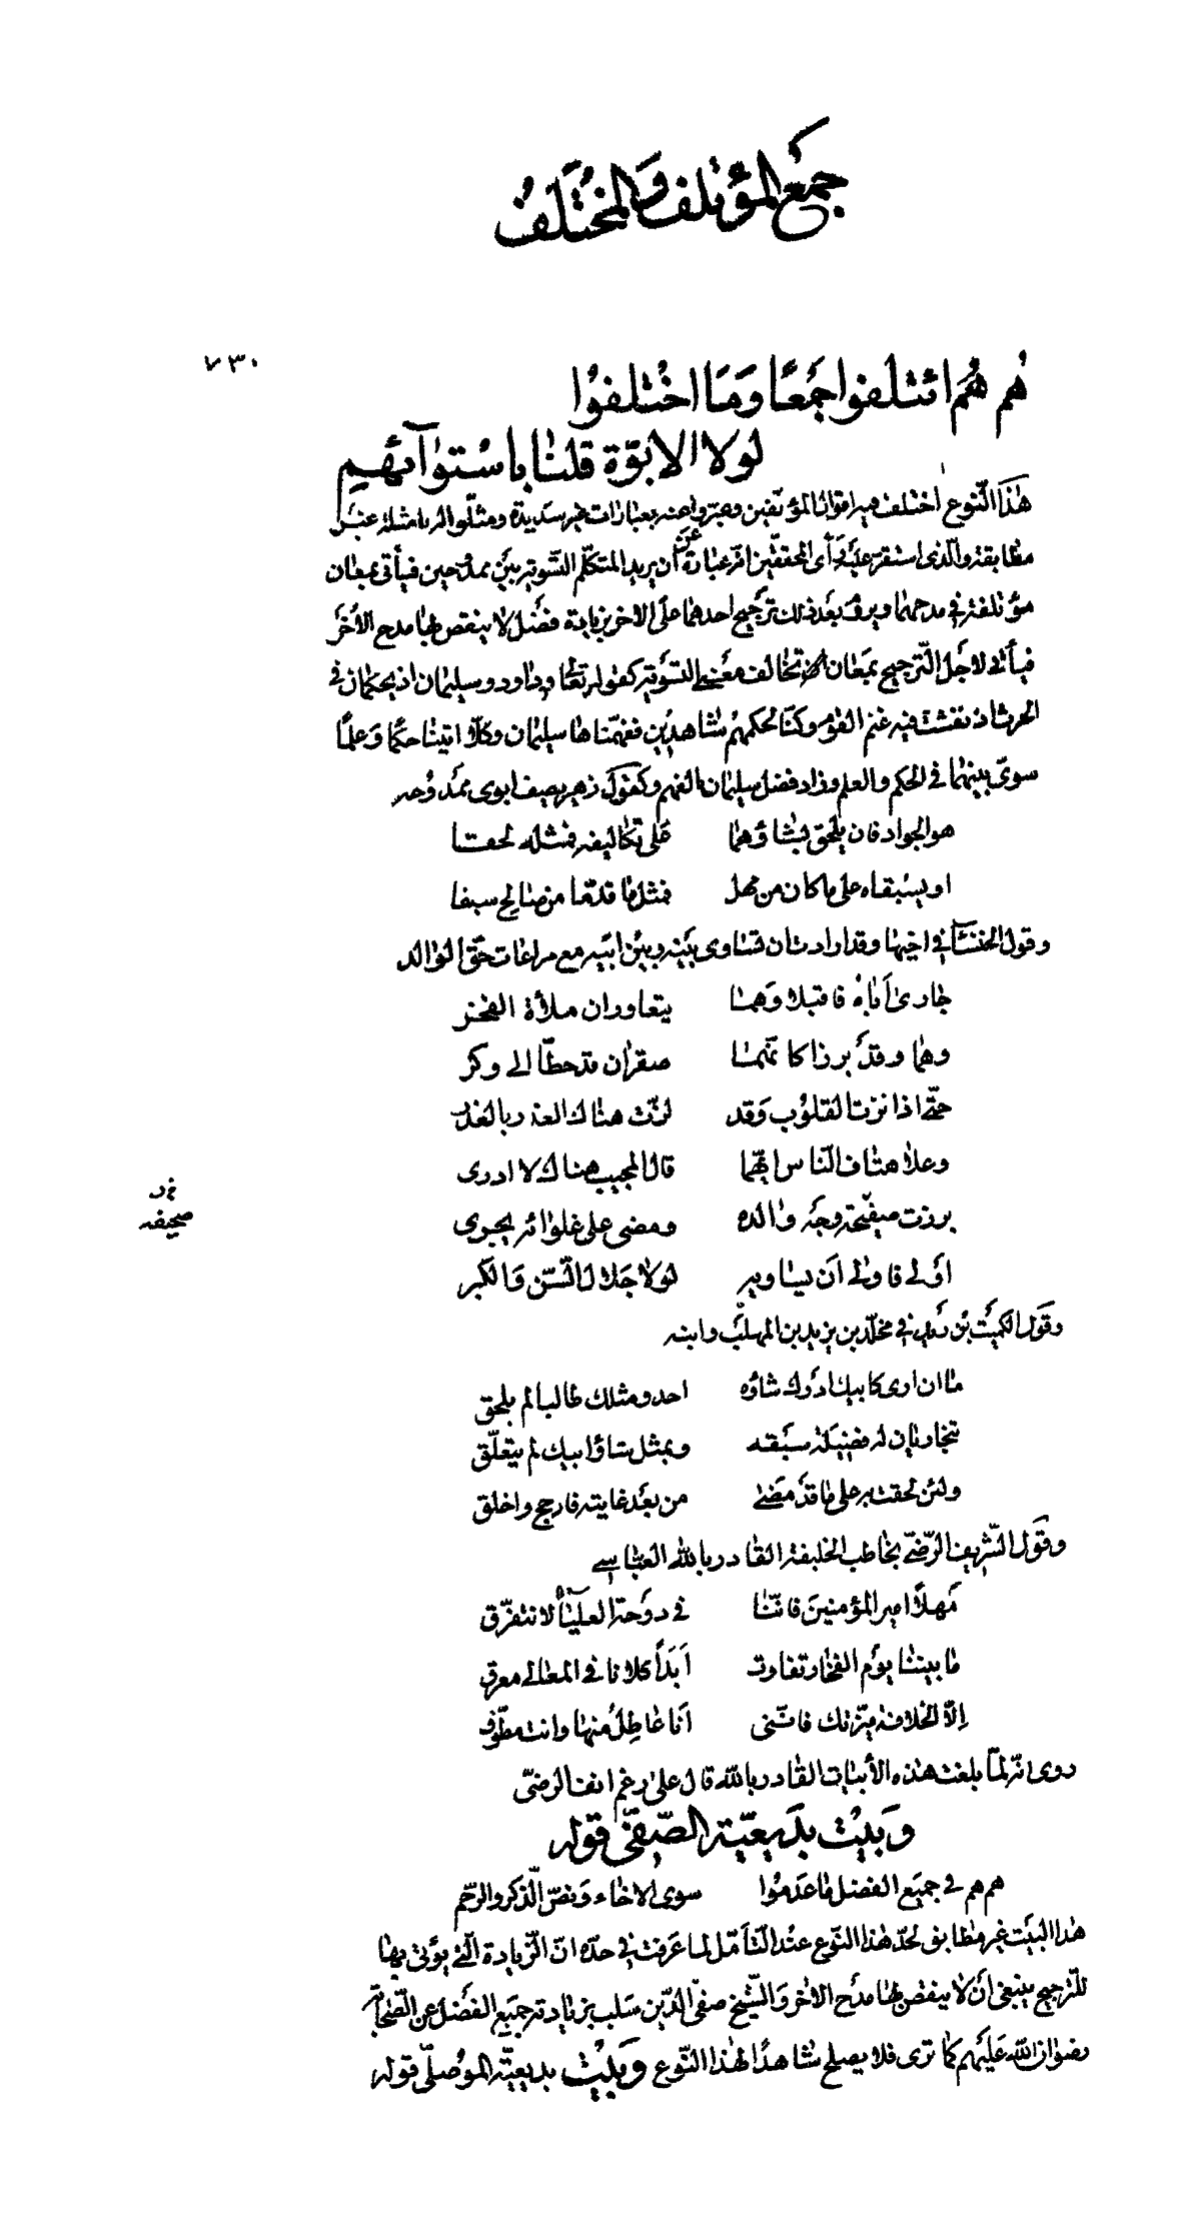 جَمْعُ المؤتلف والمختلف
٧٣٠
هُم هُمُ ائتلفوا جَمْعًا وَمَا اخْتلفوُا
لولا الابوّة قلنا باسْتوآئهِم
هٰذَا النّوع اختلف فيه اقوال المؤلّفين وعبّروا عنه بعبارات غير سَديدة ومثّلوا له بامثلة غير
مطابقة والّذى استقرّ عليْه رَأى المحققين انّه عبارة عن أن يريد المتكلّم التّسوية بيْن ممدُوحين فيأتى بمعان
مؤتلفة في مدحهما ويروم بعد ذلك ترجيح احدهما على الاخر بزيادة فضْل لا ينقص بها مدح الأخَر
فيأتى لاجْل التّرجيح بمعَان تخالف معْنى التسْوية كقوله تعالى وداود وسليمان اذ يحكمان فى
الحرث اذ نفشت فيه غنم القوْم وكنّا لحكمهم شاهديْن ففهّمناها سليمان وكلّا اتينا حكمًا وَعلمًا
سوىّ بينهما فى الحكم والعلم وزاد فضل سليمان بالفهم وكقوْل زهير يصف ابوى ممْدوُحه
هو الجواد فان يلحق بشاوهما على تكاليفه فمثله لحقا
او يسْبقاه على ما كان من مهل فمثل ما قدّما من صالح سبقا
وقول الخنسآء في اخيها وقد ارادت ان تساوى بيْنه وبيْن ابيه مع مراعات حقّ الوالد
جارى أباهُ فاقبلا وَهما يتعاوران ملأة الفخر
وهما وقد برزا كانّهما صقران قد حطّا الى وكر
حتّى اذا نزت القلوُب وَقد لزّت هناك العذر بالعذر
وعلا هتاف النّاس ايّهما قال المجيب هناك لا ادرى
برزت صفيْحة وجْه والده ومضى على غلوائه يجرى
خ ر
صحيفه
اوْلى فاولى انْ يساويه لولا جَلال السّن وَالكبر
وقوْل الكميْت بْن زيْد في مخلّد بن يزيد بن المهلّب وابنه
ما ان ارى كابيك ادْرك شاؤه احد ومثلك طالبا لم يلحق
يتجاريان له فضيلة سبقه وبمثل شاؤ ابيك لم يتعلّق
ولئن لحقت به على ما قدْ مضى من بعْد غايته فارجح واخلق
وقوْل الشّريف الرّضىّ يخاطب الخليفة القادر بالله العبّاسى
مَهلًا امير المؤمنين فانّنا فى دوْحة العلْيآء لا نتفرّق
ما بيننا يوْم الفخار تفاوت ابَدًا كلانا فى المعالى معرق
إلّا الخلافة ميّزتك فانّنى انا عاطلٌ منها وانت مطوّق
روى انّه لمّا بلغت هٰذه الأبيات القادر بالله قال على رغم انف الرضىّ
وَبيْت بدَيعيّة الصّفىّ قوله
هم هم فى جميع الفضل ما عَدموُا سوى الاخاء وَنصّ الّذكر والرّحم
هٰذا البيْت غير مطابق لحدّ هٰذا النّوع عنْد التّأمّل لما عَرفت في حدّه انّ الزّيادة الّتى يؤتى بها
للتّرجيح ينبغى أنْ لا ينقص بها مدْح الاٰخر وَالشّيخ صفىّ الدّين سَلب بزيادته جميع الفضْل عن الصّحابة
رضوان الله عَليْهم كما ترى فلا يصلح شاهدًا لهٰذا النّوع وَبيْت بديعيّة الموْصلىّ قوله